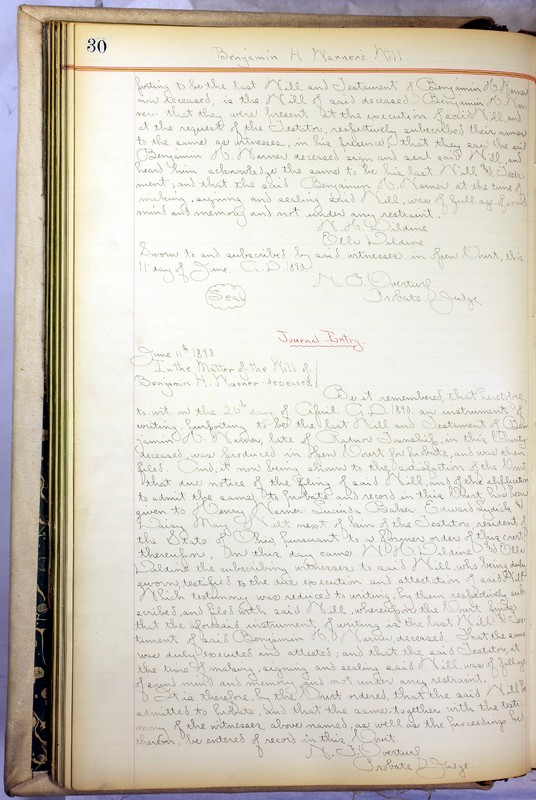 30
Benjamin H. Warner's Will.
porting to be the last Will and Testament of Benjamin H. Warner
now deceased, is the Will of said deceased Benjamin H. War-
ner, that they were present at the execution of said Will, and
at the request of the Testator, respectively subscribed their names
to the same as witnesses, in his presence, that they saw the said
Benjamin H. Warner deceased sign and seal said Will, and
heard him acknowledge the same to be his last Will and Testa-
ment, and that the said Benjamin H. Warner at the time of
making, signing and sealing said Will, was of full age, of sound
mind and memory and not under any restraint.
W. H. Dildine
Ella Dildine
Sworn to and subscribed by said witnesses in open Court, this
11" day of June A.D. 1890.
Seal
N. F. Overturf
Probate Judge.
Journal Entry.
June 11th 1890.
In the Matter of the Will of
Benjamin H. Warner deceased
Be it remembered, that heretofore,
to-wit: on the 26th day of April A.D. 1890, an instrument of
writing, purporting to be the last Will and Testament of Ben-
jamin H. Warner, late of Radnor Township, in this County
deceased, was produced in open Court for probate, and was then
filed. And, it now being shown to the satisfaction of the Court
that due notice of the filing of said Will, and of the application
to admit the same to probate and record in this Court has been
given to Henry Warner Lucinda Baker Edward
Daisy May next of kin of the Testator, resident of
the State of Ohio pursuant to a former order of this court
thereupon. On this day came W. H. Dildine and Ella
Dildine the subscribing witnesses to said Will, who being duly
sworn, testified to the due execution and attestation of said Will-
Which testimony was reduced to writing, by them respectively sub
scribed, and filed with said Will, whereupon the Court finds
that the aforesaid instrument of writing is the last Will & Tes-
tament of said Benjamin H. Warner, deceased. That the same
was duly executed and attested, and that the said Testator, at
the time of making, signing and sealing said Will, was of full age
of sound mind and memory and not under any restraint.
It is therefore, by the Court ordered, that the said Will be
admitted to probate, and that the same, together with the testi-
mony of the witnesses above named, as well as the proceedings had
thereon, be entered of record in this Court.
N. F. Overturf
Probate Judge.